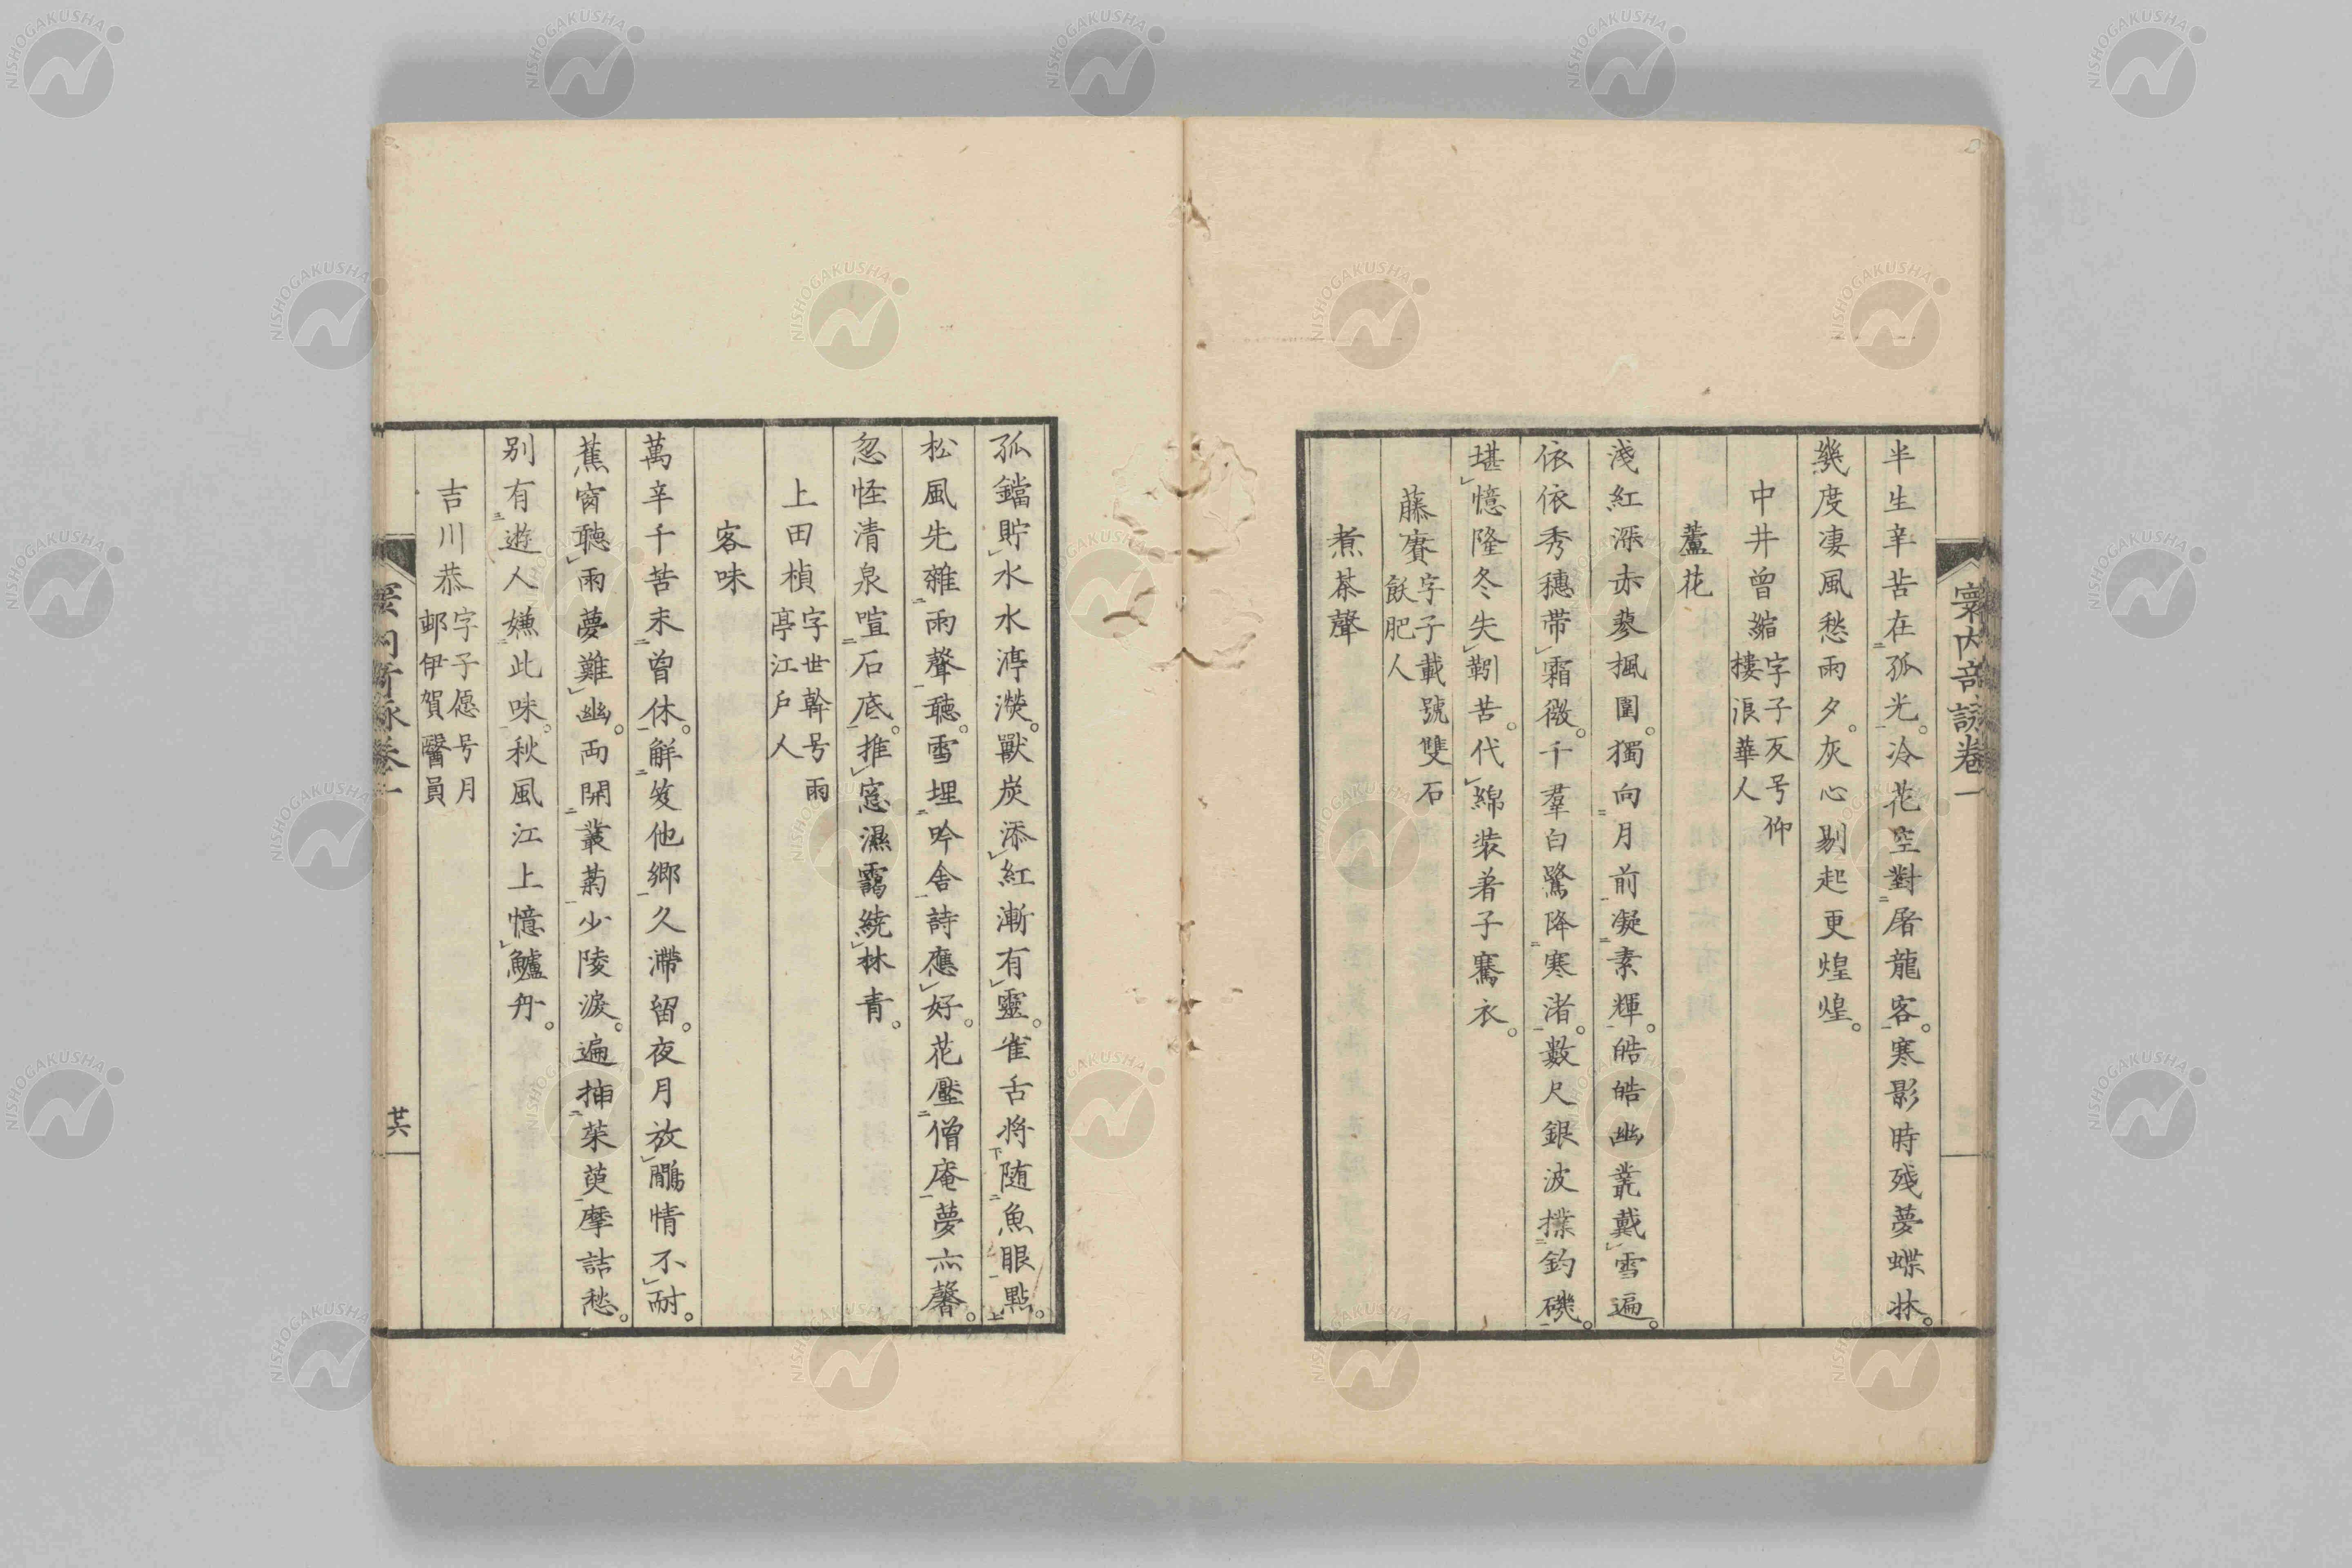 寰内奇詠卷一
半生辛苦在孤光。冷花空對屠龍客。寒影時殘夢蝶牀。
幾度凄風愁雨夕。灰心剔起更煌煌。
中井曾縮字子反号仰
樓浪華人
蘆花
淺紅深赤蓼楓圍。獨向月前凝素輝。皓皓幽叢戴雪遍。
依依秀穗帶霜微。千羣白鷺降寒渚。數尺銀波撲釣磯。
堪憶隆冬失靷苦。代綿装着子騫衣。
藤賚字子載號雙石
飫肥人
煮茶聲
孤鐺貯水水渟濙。獸炭添紅漸有靈。雀舌将随魚眼點。
松風先雜雨聲聽。雪埋吟舎詩應好。花壓僧庵夢亦馨。
忽怪清泉喧石底。推窓濕靄繞林青。
上田楨字世幹号雨
亭江戸人
客味
萬辛千苦未曾休。觧笈他郷久滯留。夜月放鷴情不耐。
蕉窗聽雨夢難幽。両開叢菊少陵淚。遍挿茱萸摩詰愁。
别有遊人嫌此味。秋風江上憶鱸舟。
吉川恭字子愿号月
邨伊賀醫員
卷一
廿六
NISHOGAKUSHA